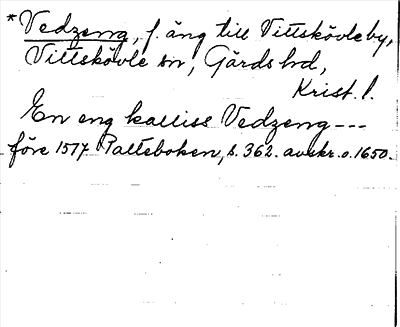 *Vedzeng, f. äng till Vittskövle by,
Vittskövle sn, Gärds hd,
Krist. l.
En eng kalliss Vedzeng ---
före 1517 Palteboken, s. 362. avskr. o. 1650.